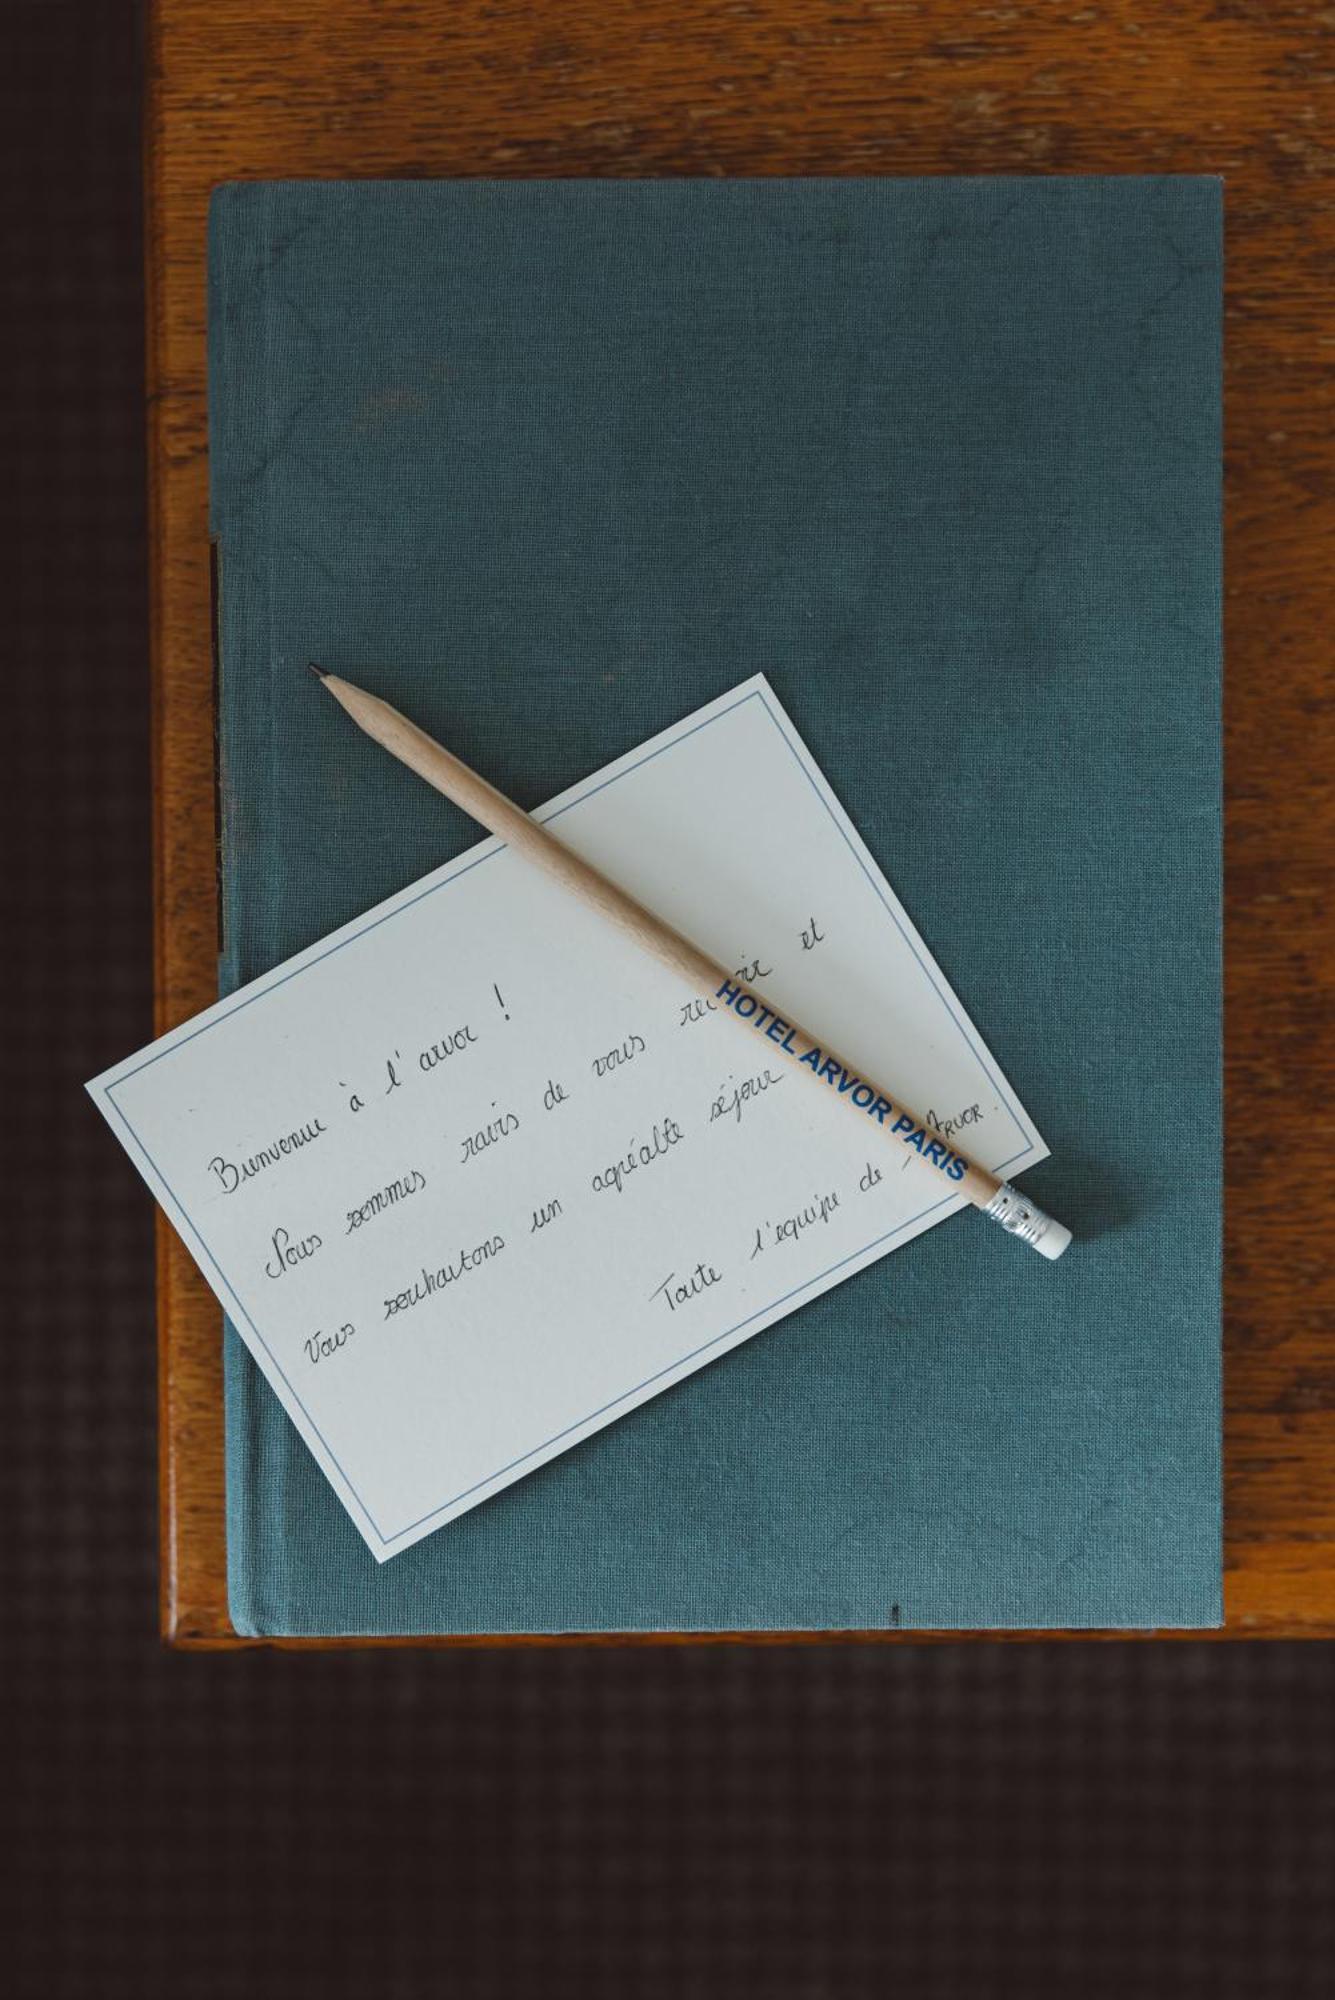 Bienvenue à l'arvor !
Nous sommes ravis de vous recevoir et
vous souhaitons un agréable séjour
Toute l'équipe de l'Arvor.
HOTEL ARVOR PARIS